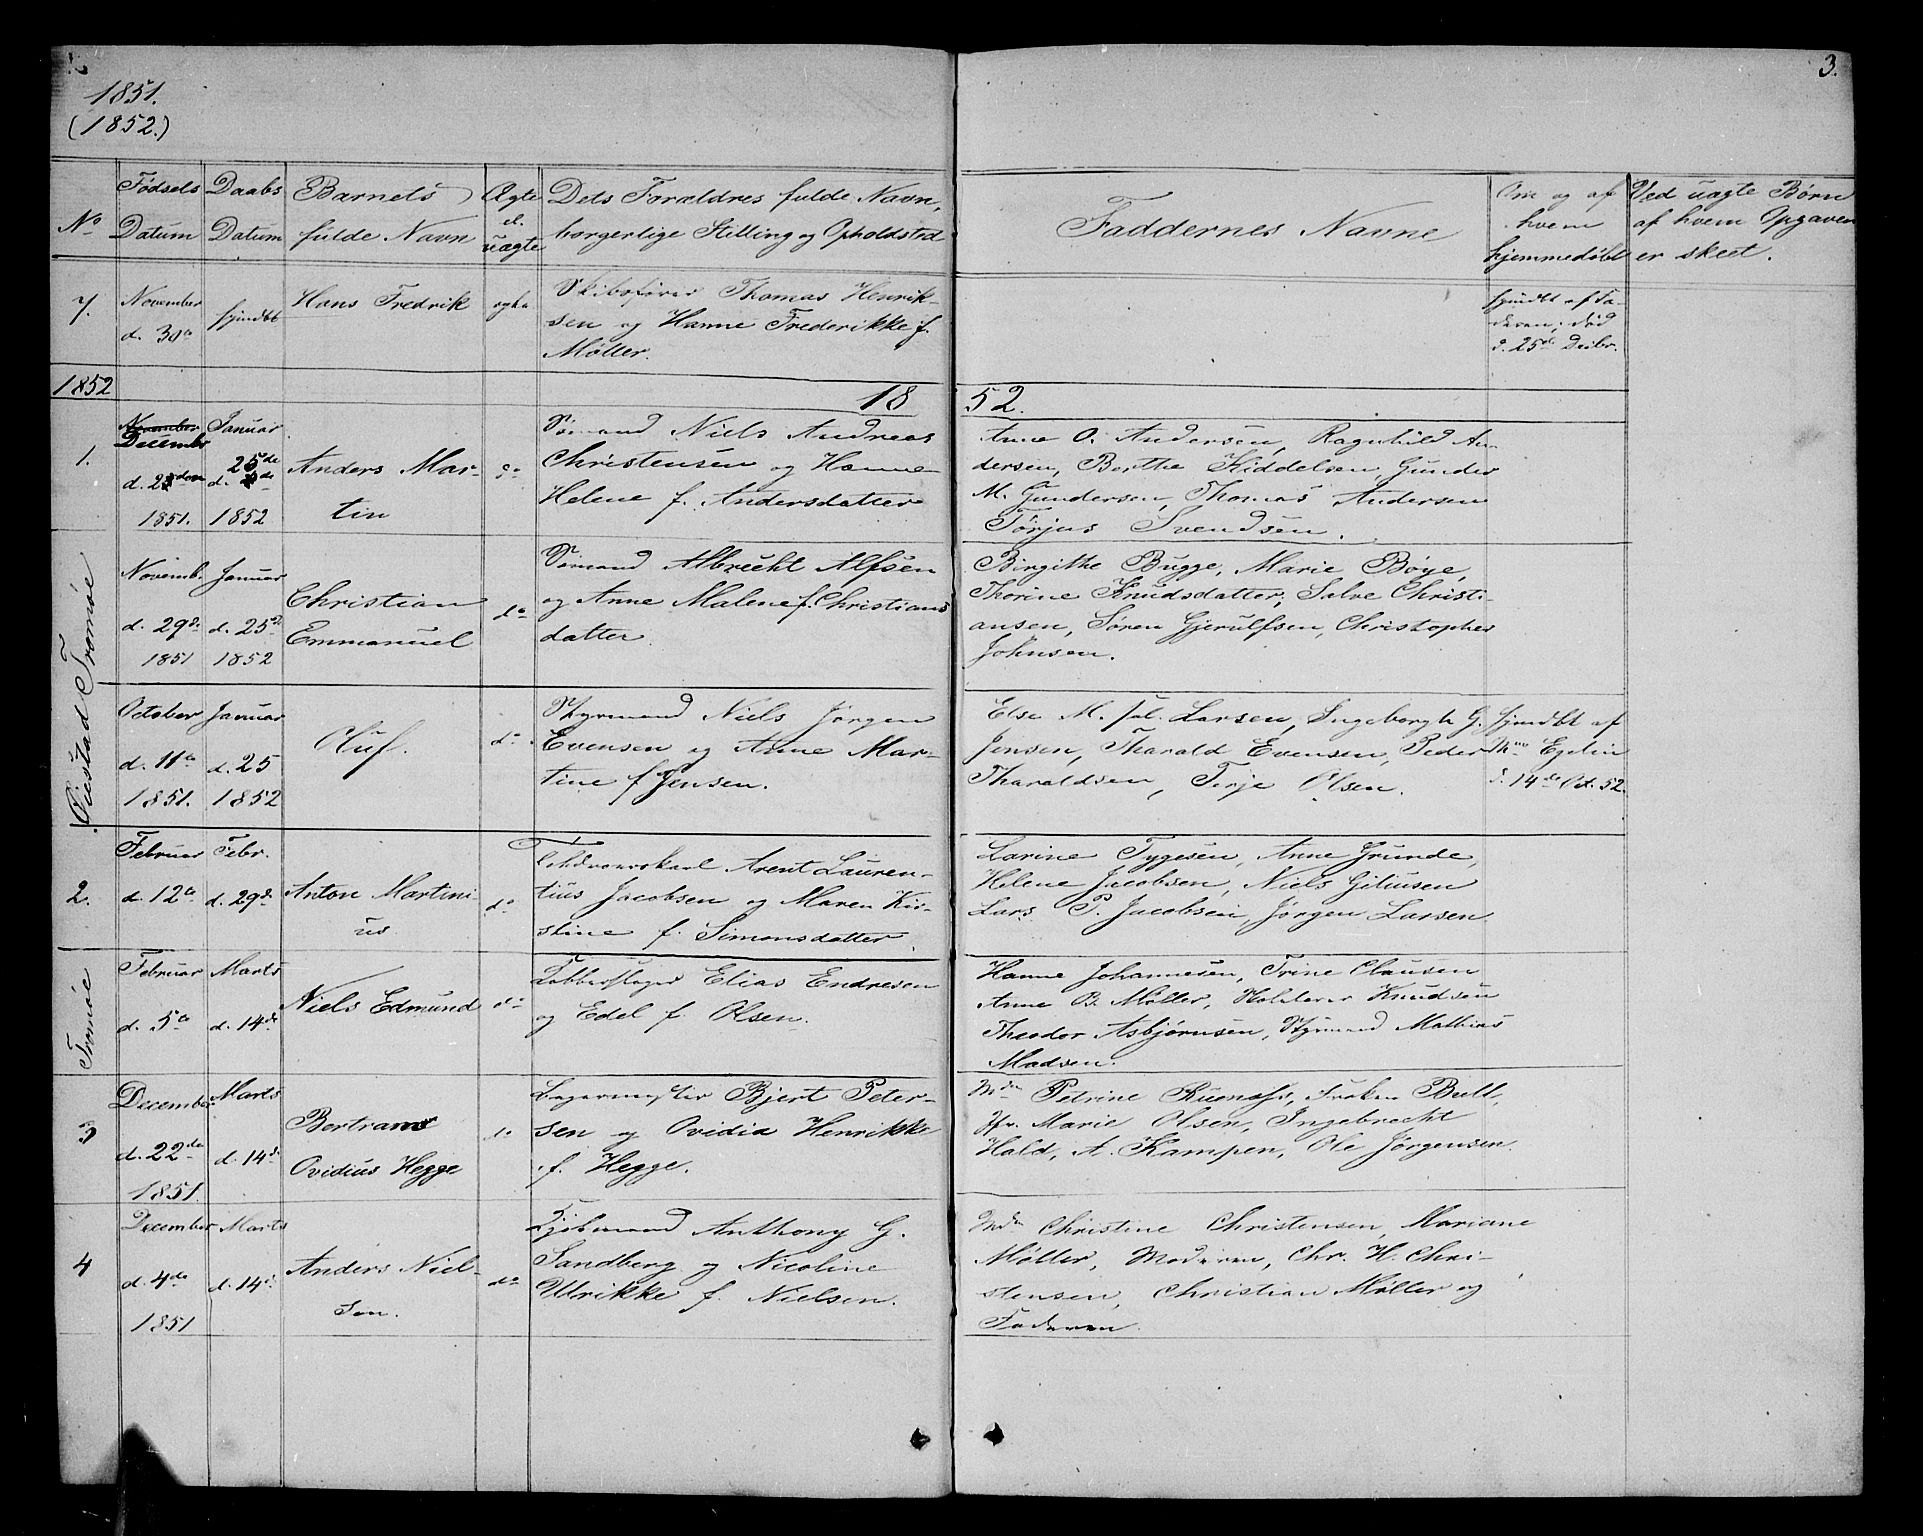 1851.
(1852.)
3.
No
Fødsels Datum
Daabs Datum
Barnets fulde Navn
Ægte el. uægte
Dets Forældres fulde Navn, borgerlige Stilling og Opholdsted
Faddernes Navne
Om og af hvem hjemmedøbt
Ved uægte Børn af hvem Opgaven er skeet.
7.
November
d. 30te
hjmdbt
Hans Fredrik
ægte
Skibsfører Thomas Henrik-
sen og Hanne Frederikke f.
Møller.
hjmdbt af Fa-
deren; død
d. 25de Decbr.
1852
1852.
1.
November
Decembr
d. 2
1851.
Januar
25de
1852
Anders Mar-
tin
do
Sømand Niels Andreas
Christensen og Hanne
Helene f. Andersdatter
Anne O. Andersen, Ragnhild An-
dersen, Berthe Kiddelsen, Gunder
M. Gundersen, Thomas Andersen
Tørjus Svendsen.
Øiestad Tromøe
Novemb.
d. 29de
1851
Januar
d. 25de
1852
Christian
Emmanuel
do
Sømand Albrecht Alfsen
og Anne Malene f. Christians
datter.
Birgithe Bugge, Marie Bøye,
Thorine Knudsdatter, Salve Christi-
ansen, Søren Gjerulfsen, Christopher
Johnsen.
October
d. 11te
1851.
Januar
d. 25
1852
Oluf.
do
Styrmand Niels Jørgen
Evensen og Anne Mar-
tine f. Jensen.
Else M. Larsen, Ingeborgh G.
Jensen, Tharald Evensen, Peder
Tharaldsen, Terje Olsen.
hjmdbt af
d. 14de Oct. 52.
2.
Februar
d. 12te
Febr.
d. 29de
Anton Martini
us
do
Arent Lauren-
tius Jacobsen og Maren Kir-
stine f. Simonsdatter.
Larine Tygesen, Anne Grunde,
Helene Jacobsen, Niels Giliusen
Lars P. Jacobsen, Jørgen Larsen
Tromøe
Februar
d. 5te
Marts
d. 14de
Niels Edmund
do
Kobberslager Elias Endresen
og Edel f. Olsen.
Hanne Johannesen, Trine Clausen
Anne B. Møller, Knudsen
Theodor Asbjørnsen, Styrmand Mathias
Madsen.
3
December
d. 22de
1851.
Marts
d. 14de
Bertram
Ovidius Hegge
do
Bjert Peter-
sen og Ovidia Henrikke
f. Hegge.
Mdm Petrine Frøken Bull,
Jfr. Marie Olsen, Ingebrecht
Hald, A. Kampen, Ole Jørgensen.
4
December
d. 4de
1851
Marts
d. 14de
Anders Niel-
sen.
do
Kjøbmand Anthony G.
Sandberg og Nicoline
Ulrikke f. Nielsen.
Mdm Christine Christensen, Mariane
Møller, Moderen, Chr. H. Chri-
stensen, Christian Møller og
Faderen.